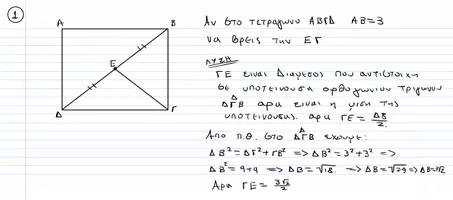 1
Α Β
Ε
Δ Γ
Αν στο τετράγωνο ΑΒΓΔ ΑΒ=3
να βρεις την ΕΓ
ΛΥΣΗ
ΓΕ είναι Διάμεσος που αντιστοιχη
σε υποτείνουσα ορθογωνίου τριγώνου
ΔΓΒ αρα είναι η μιση της
υποτείνουσας. αρα ΓΕ = ΔΒ/2.
Απο π.θ. στο ΔΓΒ έχουμε:
ΔΒ² = ΔΓ² + ΓΒ² => ΔΒ² = 3² + 3² =>
ΔΒ² = 9+9 => ΔΒ = √18. => ΔΒ = √2·9 => ΔΒ=3√2
Αρα ΓΕ = 3√2/2